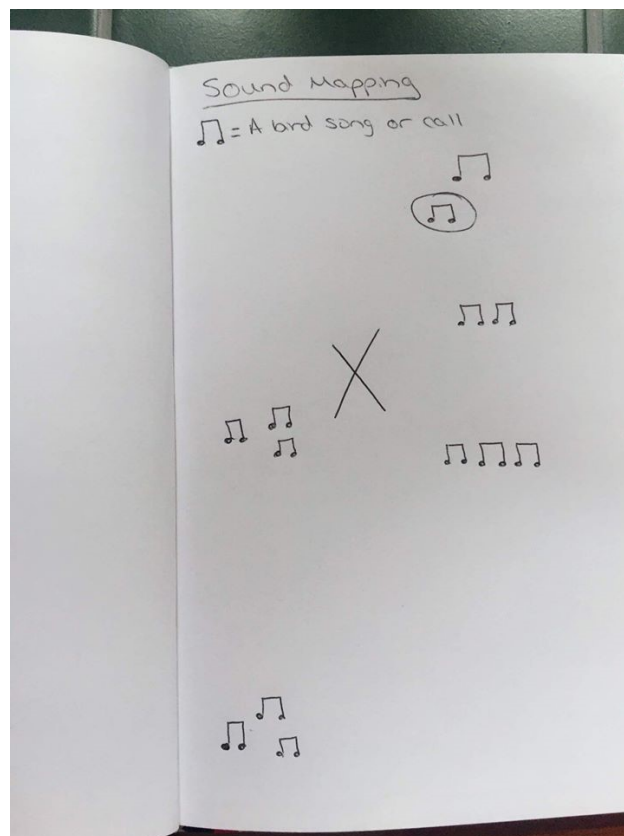 Sound Mapping
♫ = A bird song or call
X